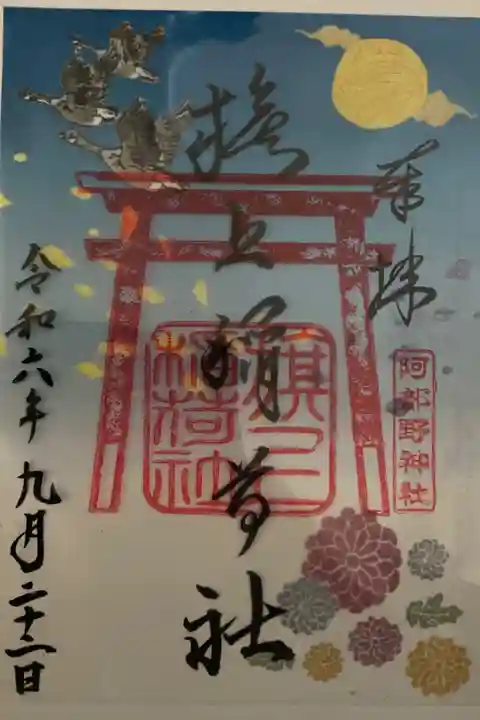 奉拝
阿部野神社
旗上稲荷社
旗上
稲荷社
令和六年九月二十二日